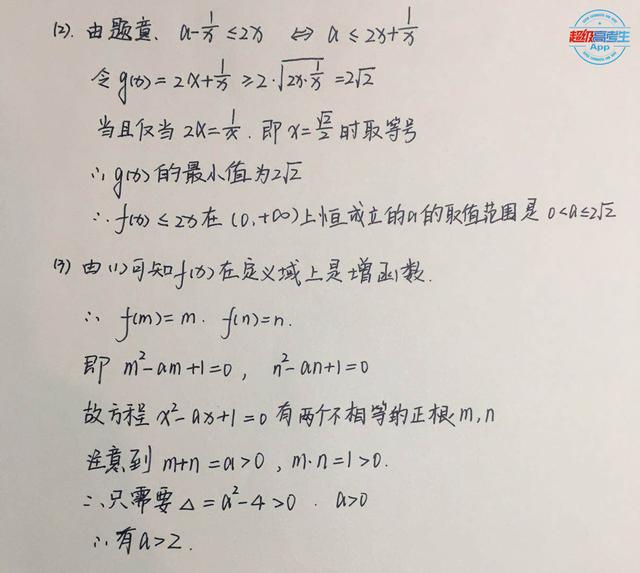 超级高考生
App
(2). 由题意、a-1/x≤2x ⇔ a≤2x+1/x
令g(x)=2x+1/x≥2·√(2x·1/x)=2√2
当且仅当2x=1/x.即x=√2/2时取等号
∴g(x)的最小值为2√2
∴f(x)≤2x在(0,+∞)上恒成立的a的取值范围是0<a≤2√2
(3) 由(1)可知f(x)在定义域上是增函数.
∴ f(m)=m. f(n)=n.
即 m²-am+1=0, n²-an+1=0
故方程x²-ax+1=0有两个不相等的正根m,n
注意到m+n=a>0,m·n=1>0.
∴只需要△=a²-4>0.a>0
∴有a>2.